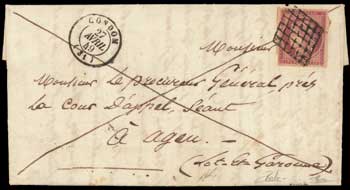 CONDOM
27
AVRIL
49
(31)
Monsieur
Monsieur Le procureur Général, près
La Cour D'appel, Séant
à agen. —
(Lot-Et-Garonne)